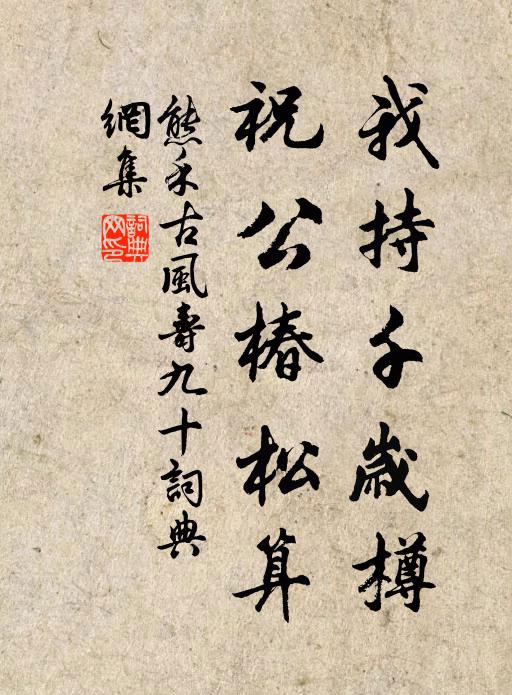 我持千歲樽
祝公椿松算
熊禾古風壽九十詞典
網集
詞典网印